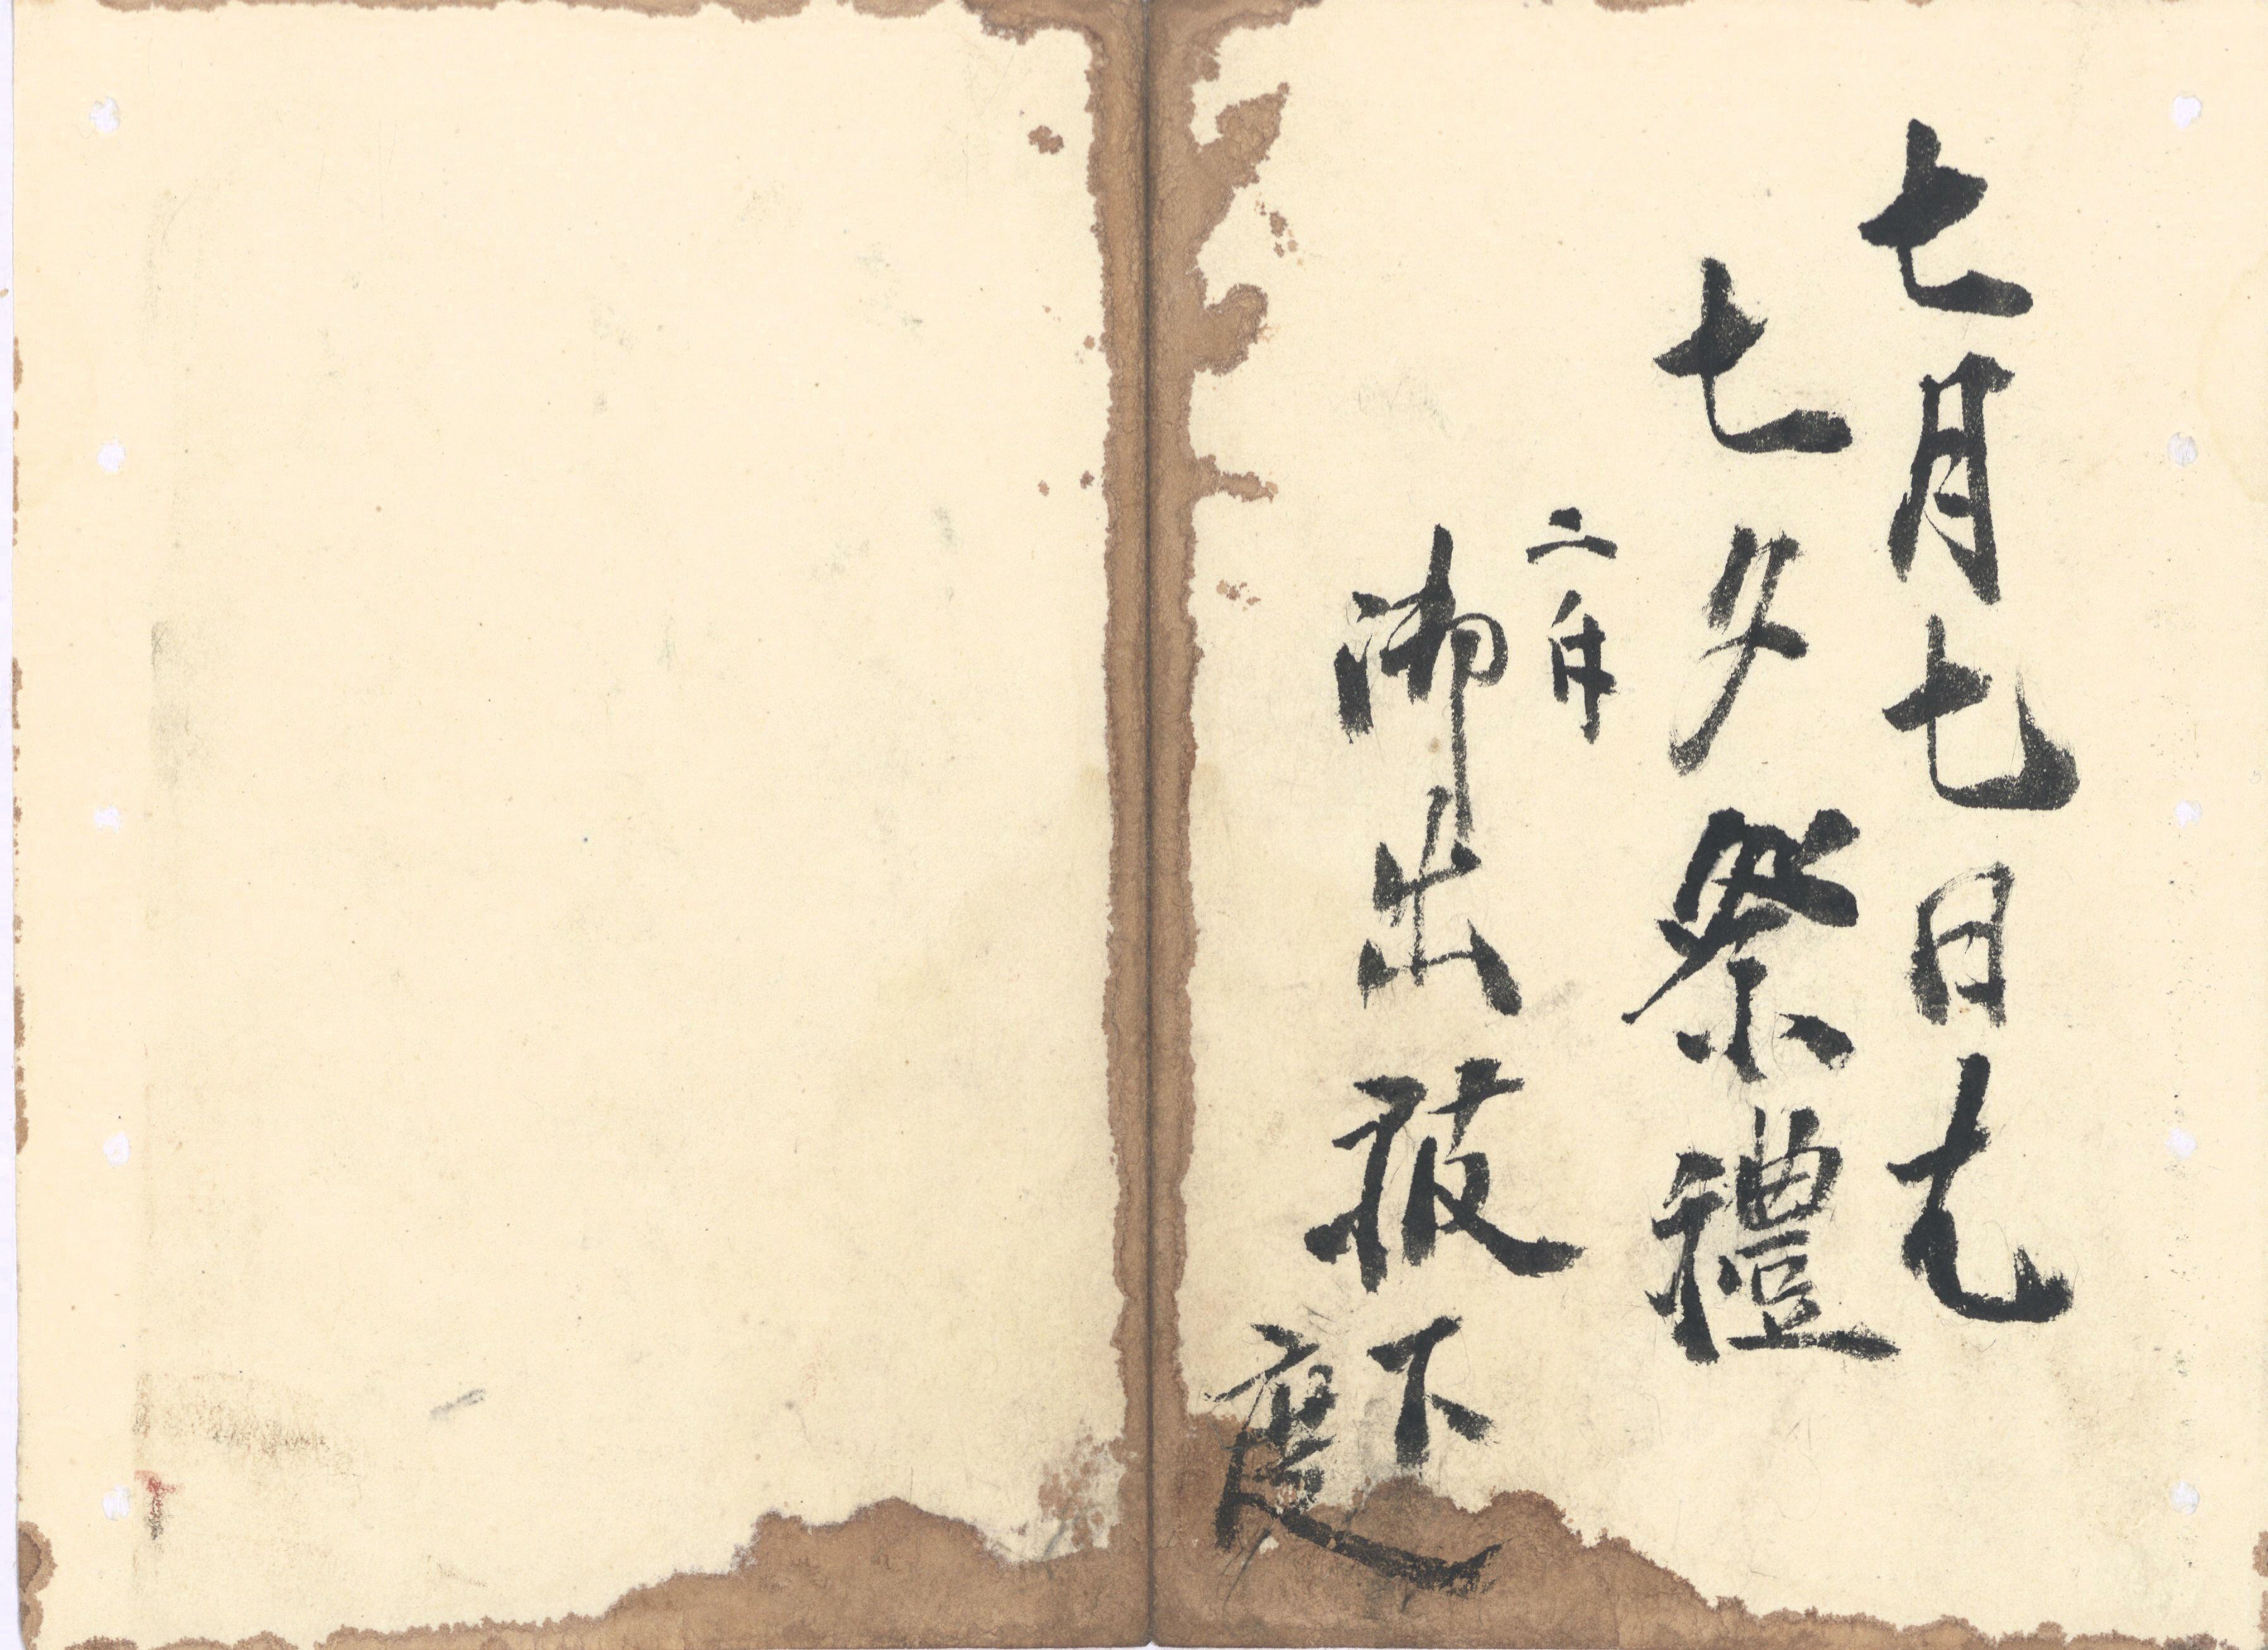 七月七日
七夕祭禮
二
御出被下
度